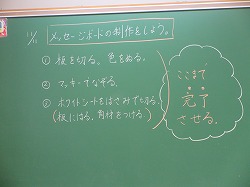 メッセージボードの制作をしよう。
① 板を切る。色をぬる。
② マッキーでなぞる。
③ ホワイトシートをはさみで切る。
(板にはる。角材をつける。)
ここまで
完了
させる。